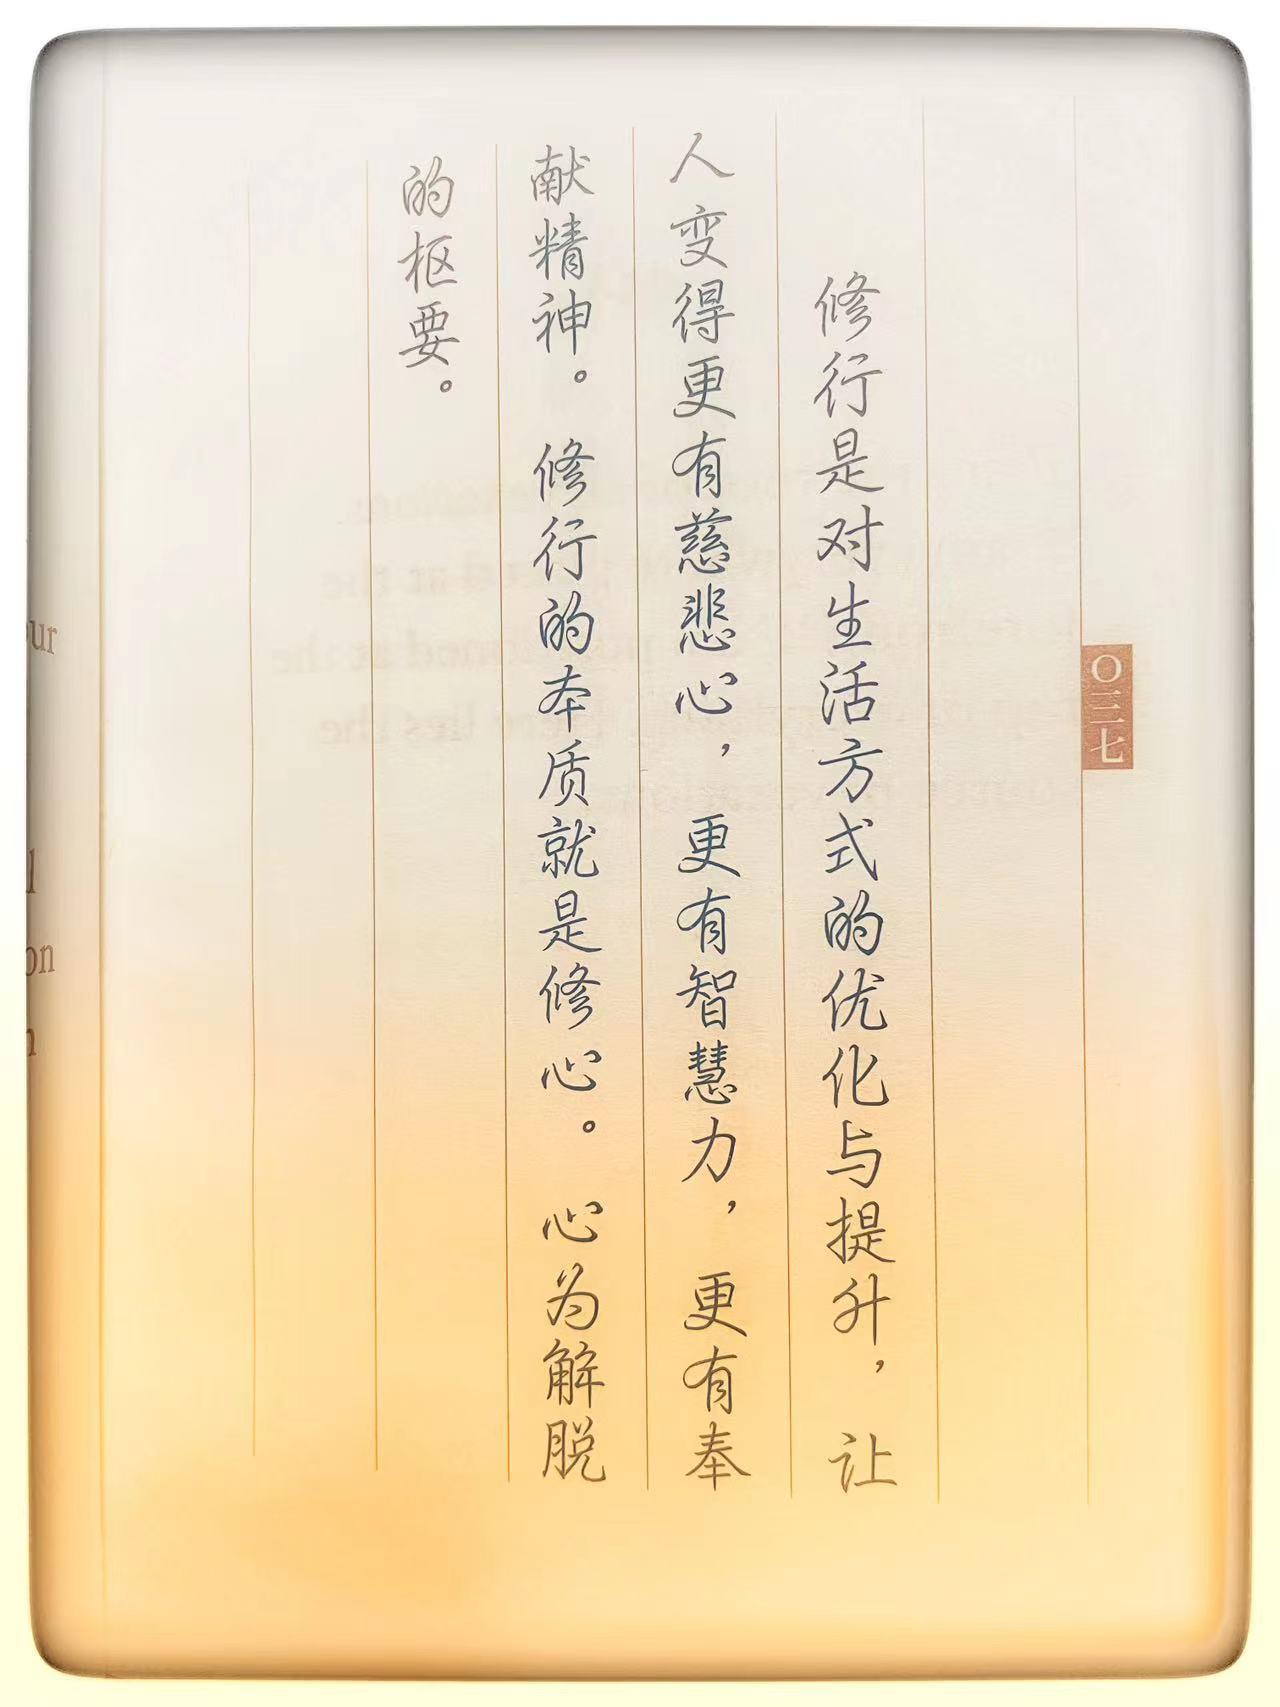 修行是对生活方式的优化与提升，让
人变得更有慈悲心，更有智慧力，更有奉
献精神。修行的本质就是修心。心为解脱
的枢要。
〇三七
our
l
on
n